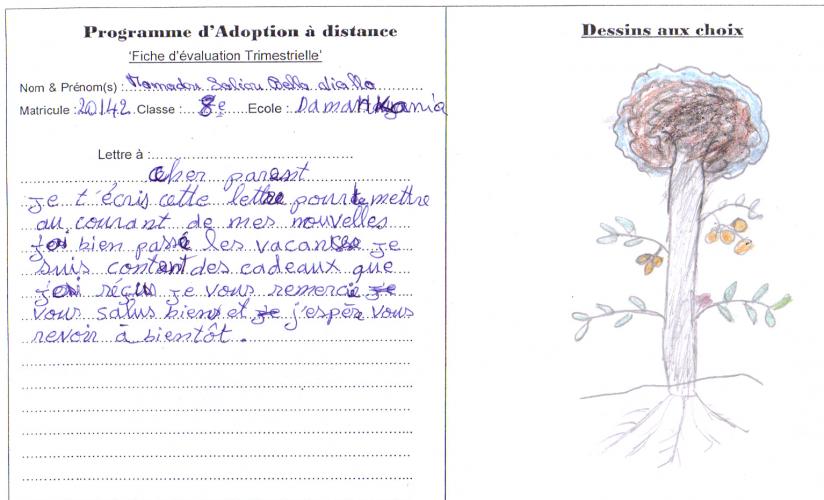 Programme d'Adoption à distance
'Fiche d'évaluation Trimestrielle'
Nom & Prénom(s) : Mamadou Saliou Bella diallo
Matricule : 20142 Classe : 8e Ecole : Damakania
Lettre à :
cher parent
je t'écris cette lettre pour te mettre
au courant de mes nouvelles
j'ai bien passé les vacances je
suis content des cadeaux que
j'ai réçus je vous remercie je
vous salus biens et je j'espèr vous
revoir à bientôt.
Dessins aux choix